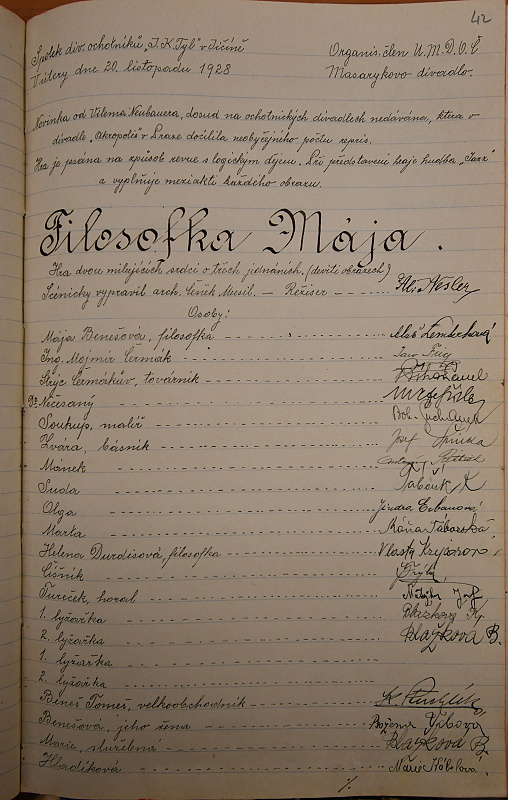 42
Spolek div. ochotníků "J. K. Tyl" v Jičíně
Organis. člen Ú. M. D. O. Č
V úterý dne 20. listopadu 1928
Masarykovo divadlo.
Novinka od Viléma Neubauera, dosud na ochotnických divadlech nedávána, která v
divadle "Akropolis" v Praze docílila neobyčejného počtu repris.
Hra je psána na způsob revue s logickým dějem. Při představení hraje hudba "Jazz"
a vyplňuje meziakti každého obrazu.
Filosofka Mája.
Hra dvou milujících srdcí o třech jednáních. (devíti obrazech)
Scénicky vypravil arch. Musil. — Režiser
Osoby:
Mája Benešová, filosofka
Ing. Mojmír Čermák
Strýc Čermákův, továrník
Dr Nečesaný
Soukup, malíř
Zvára, básník Josef
Mánek
Suda
Olga Jindra Erbanová
Marta Máňa Táborská
Helena Durdisová, filosofka Vlasta
Číšník
Tureček, horal
1. lyžařka
2. lyžařka Blažková B.
1. lyžařka
2. lyžařka
Beneš Tomeš, velkoobchodník
Benešová, jeho žena Božena
Marie, služebná Blažková B.
Hladíková Marie
./.